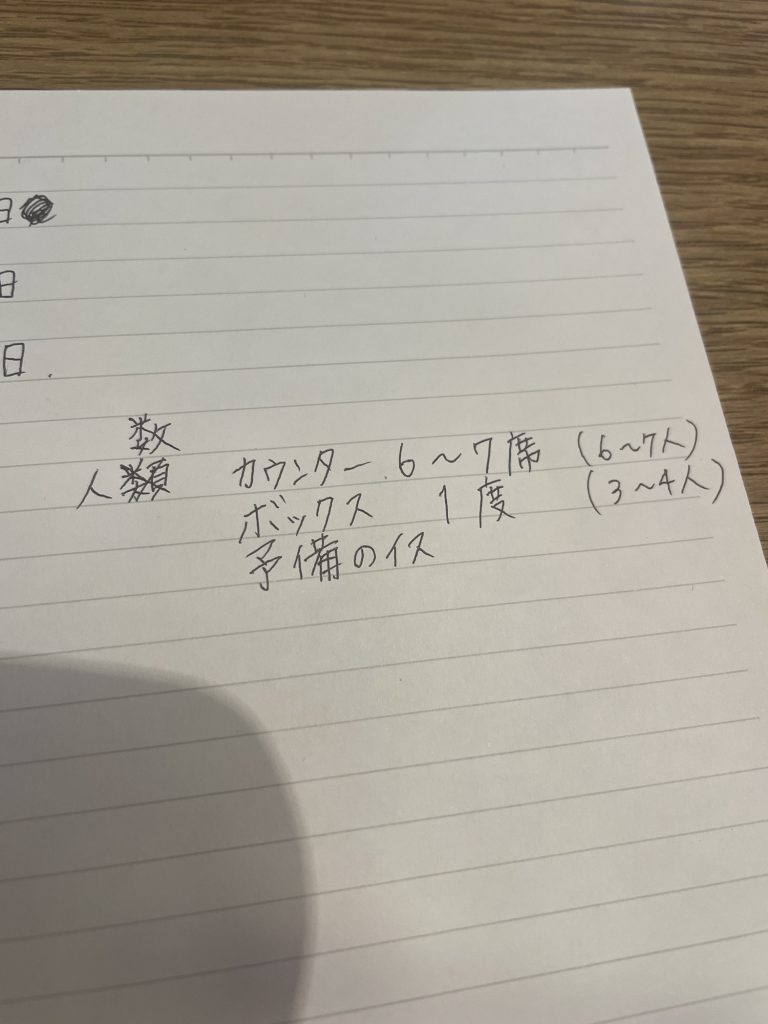 日
日
日.
数
人類 カウンター 6～7席 (6～7人)
ボックス 1度 (3～4人)
予備のイス